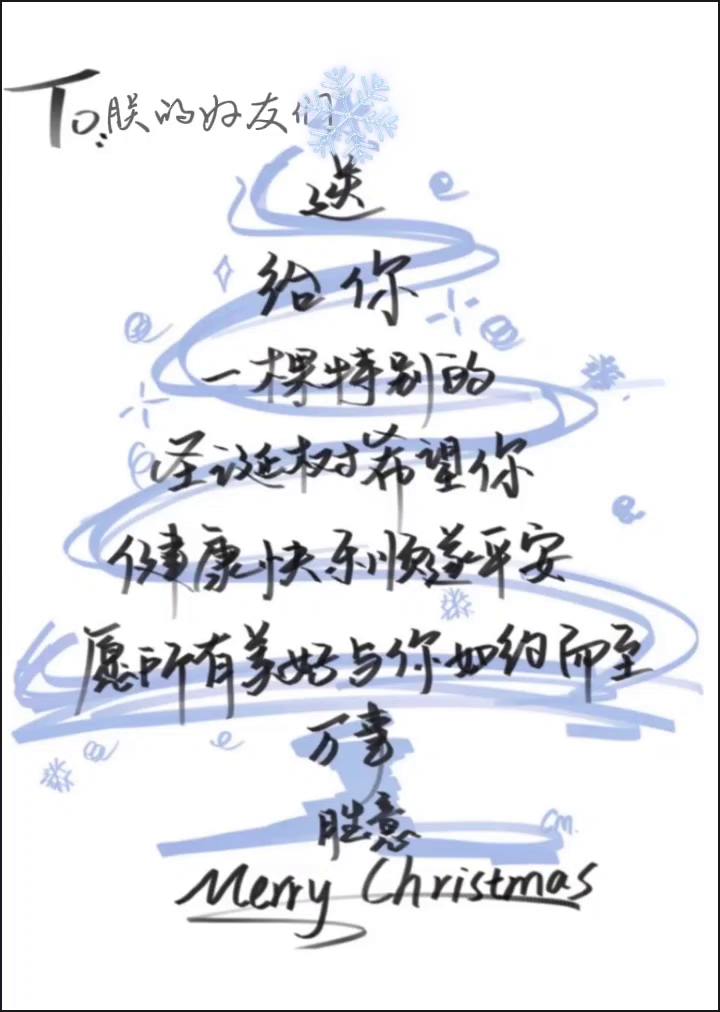 To:朕的好友们
送
给你
一棵特别的
圣诞树希望你
健康快乐顺遂平安
愿所有美好与你如约而至
万事
胜意
CM.
Merry Christmas